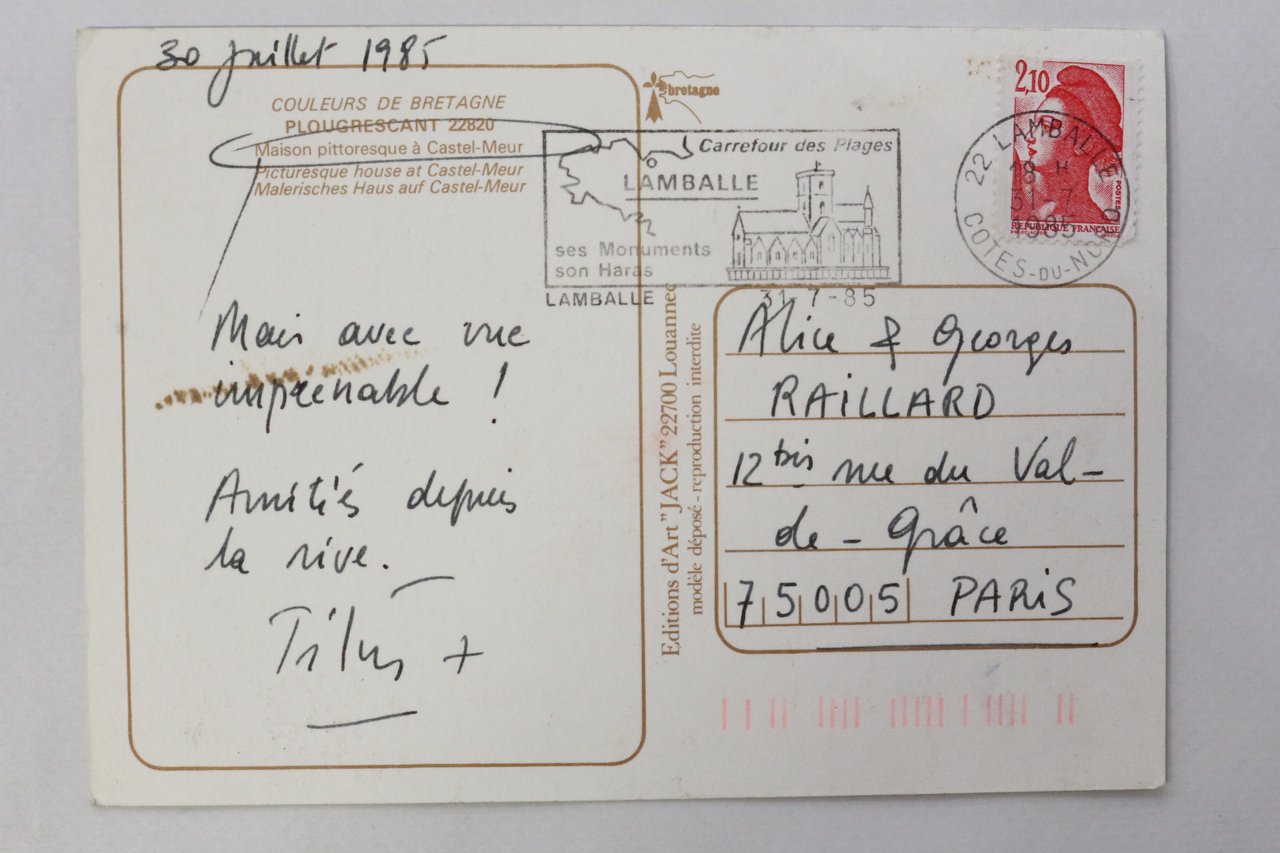 30 Juillet 1985
COULEURS DE BRETAGNE
PLOUGRESCANT 22820
Maison pittoresque à Castel-Meur
Picturesque house at Castel-Meur
Malerisches Haus auf Castel-Meur
Mais avec vue
imprenable !
Amitiés depuis
la rive.
bretagne
Carrefour des Plages
LAMBALLE
ses Monuments
son Haras
LAMBALLE
31 7-85
2,10
POSTES
REPUBLIQUE FRANÇAISE
22 LAMBALLE
18 H
31 7
1985
COTES-DU-NORD
Editions d'Art "JACK" 22700 Louannec
modèle déposé - reproduction interdite
Alice & Georges
RAILLARD
12 bis rue du Val-
de-Grâce
75005 PARIS